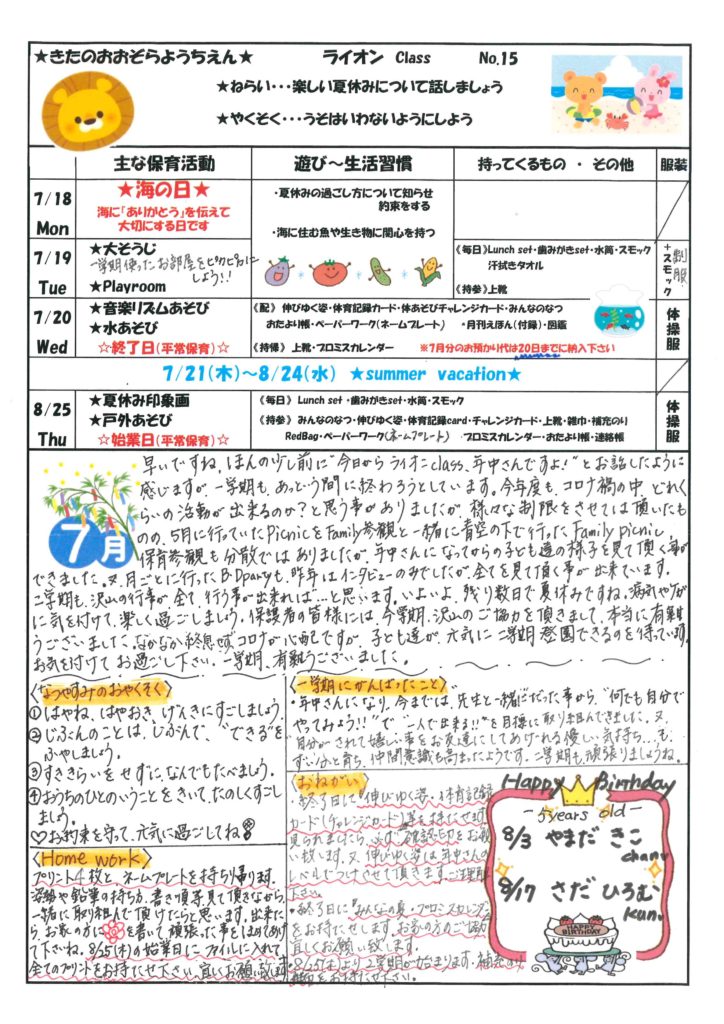 ★きたのおおぞらようちえん★ ライオン Class No.15
★ねらい・・・楽しい夏休みについて話しましょう
★やくそく・・・うそはいわないようにしよう
主な保育活動 遊び～生活習慣 持ってくるもの ・ その他 服装
7/18 Mon
★海の日★
海に「ありがとう」を伝えて
大切にする日です
・夏休みの過ごし方について知らせ
約束をする
・海に住む魚や生き物に関心を持つ
7/19 Tue
★大そうじ
一学期使ったお部屋をピカピカに
しよう!!
★Playroom
《毎日》Lunch set・歯みがきset・水筒・スモック
汗拭きタオル
《持参》上靴
制服
+スモック
7/20 Wed
★音楽リズムあそび
★水あそび
☆終了日(平常保育)☆
《配》 伸びゆく姿・体育記録カード・体あそびチャレンジカード・みんなのなつ
おたより帳・ペーパーワーク(ネームプレート) ・月刊えほん(付録)・図鑑
《持帰》 上靴・プロミスカレンダー ※7月分のお預かり代は20日までに納入下さい
体操服
7/21(木)～8/24(水) ★summer vacation★
8/25 Thu
★夏休み印象画
★戸外あそび
☆始業日(平常保育)☆
《毎日》 Lunch set ・歯みがきset・水筒・スモック
《持参》 みんなのなつ・伸びゆく姿・体育記録card・チャレンジカード・上靴・雑巾・補充のり
RedBag・ペーパーワーク(ネームプレート) プロミスカレンダー・おたより帳・連絡帳
体操服
7月
早いですね。ほんの少し前に"今日からライオンclass、年中さんですよ!"とお話したように
感じますが一学期も、あっという間に終わろうとしています。今年度も、コロナ禍の中、どれく
らいの活動が出来るのか?と思う事がありましたが、様々な制限をさせては頂いたも
のの、5月に行っていたPicnicをFamily参観と一緒に青空の下で行ったFamily picnic。
保育参観も分散ではありましたが、年中さんになってからの子ども達の様子を見て頂く事が
できました。又、月ごとに行ったB・Dpartyも、昨年はインタビューのみでしたが全てを見て頂く事が出来ています。
二学期も、沢山の行事が全て行う事が出来れば…と思います。いよいよ、残り数日で夏休みですね。病気やケガ
に気を付けて、楽しく過ごしましょう。保護者の皆様には、今学期、沢山のご協力を頂きまして、本当に有難
うございました。なかなか終息せずコロナが心配ですが、子ども達が元気に二学期登園できるのを待っています。
お気を付けてお過ごし下さい。一学期、有難うございました。
〈なつやすみのおやくそく〉
①はやね、はやおき、げんきにすごしましょう。
②じぶんのことは、じぶんで、"できる"を
ふやしましょう。
③すききらいをせずに、なんでもたべましょう。
④おうちのひとのいうことをきいて、たのしくすご
しましょう。
♡お約束を守って、元気に過ごしてね
〈Home work〉
プリント4枚と、ネームプレートを持ち帰ります。
姿勢や鉛筆の持ち方、書き順等、見て頂きながら
一緒に取り組んで頂けたらと思います。出来た
ら、お家の方に を書いて頑張った事をほめてあげ
て下さいね。8/25(木)の始業日に、ファイルに入れて
全てのプリントをお持たせ下さい。宜しくお願い致します。
〈一学期にがんばったこと〉
・年中さんになり、今までは、先生と一緒にだった事から、"何でも自分で
やってみよう!!"で"一人で出来る!!"を目標に取り組んできました。又、
自分がされて嬉しい事をお友達にしてあげれる優しい気持ち…も、
ずいぶんと育ち、仲間意識も高まったようです。二学期も、頑張りましょうね。
〈おねがい〉
・終了日に『伸びゆく姿・体育記録
カード(チャレンジカード)』等も持たせます。
見られましたら、必ず、確認印をお願
い致します。又、伸びゆく姿は年中さんの
レベルでつけさせて頂きます。ご理解
下さい。
・終了日に『みんなの夏・プロミスカレンダー』
をお持たせします。お家の方のご協力
宜しくお願い致します。
・8/25(木)より2学期が始まります。補充のり
お持たせ下さい。
Happy Birthday
－5years old－
8/3 やまだ きこ
chan♥
8/17 さだ ひろむ
kun♥
HAPPY BIRTHDAY